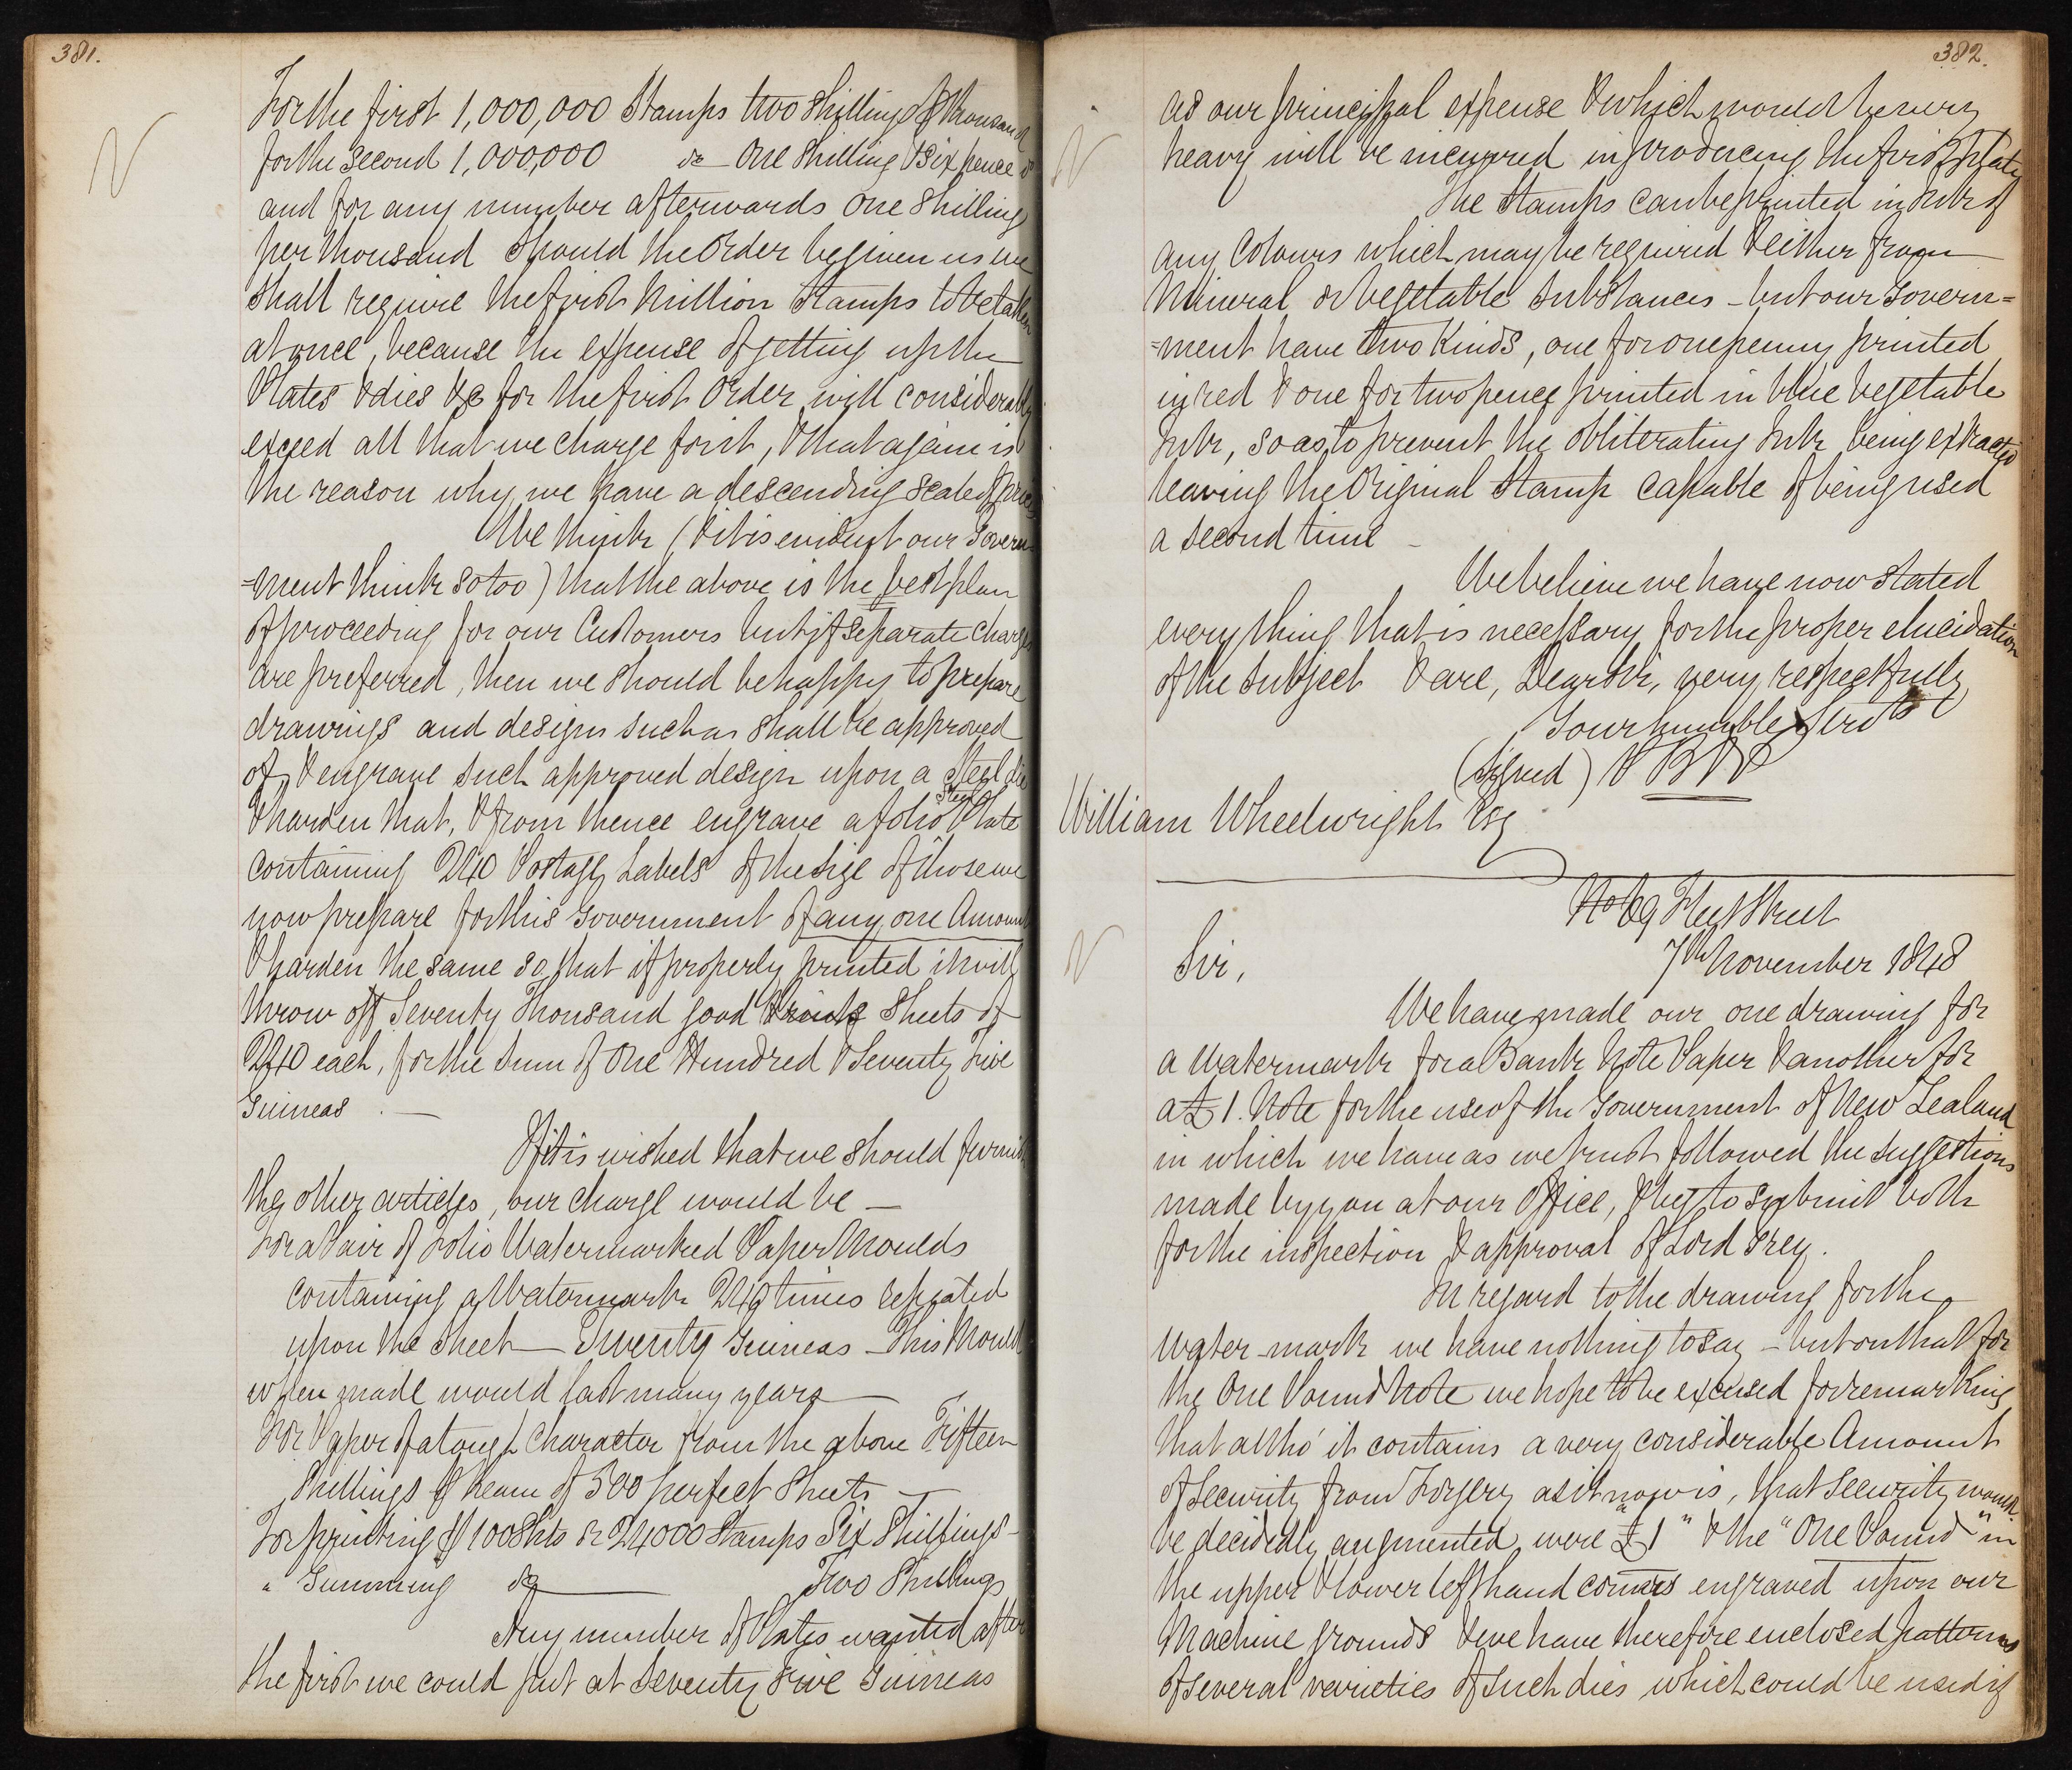 381.
For the first 1,000,000 Stamps two Shillings ⅌ thousand
for the second 1,000,000 do One Shilling & Six pence do
and for any number afterwards One Shilling
per thousand Should the Order be given us we
shall require the first Million Stamps to be taken
at once, because the expense of getting up the
Plates & dies &c for the first Order will considerably
exceed all that we charge for it, & that again is
the reason why we have a descending scale of prices
We think (& it is evident our Govern-
=ment think so too) that the above is the best plan
of proceeding for our Customers but if separate charges
are preferred, then we should be happy to prepare
drawings and designs such as shall be approved
of, & engrave such approved design upon a Steel die
& harden that, & from thence engrave a folio Steel Plate
containing 240 Postage Labels of the size of those we
now prepare for this Government of any one Amount
& harden the same so that if properly printed it will
throw off Seventy Thousand good Prints Sheets of
240 each, for the sum of One Hundred & Seventy Five
Guineas. —
If it is wished that we should furnish
the other articles, our charge would be —
For a Pair of Folio Watermarked Paper Moulds
containing a Watermark 240 times repeated
upon the Sheet — Twenty Guineas — This Mould
when made would last many years —
For Paper of a tough Character from the above Fifteen
Shillings ⅌ Ream of 500 perfect Sheets —
For printing ⅌ 100 Shts or 24000 Stamps Six Shillings —
" Gumming do — Two Shillings
Any number of Plates wanted after
the first we could put at Seventy Five Guineas
382.
as our principal expense & which would be very
heavy will be incurred in producing the first Plate
The Stamps can be printed in Ink of
any Colours which may be required & either from
Mineral or Vegetable Substances — but our Govern=
=ment have two Kinds, one for one penny printed
in red & one for two pence printed in blue Vegetable
Ink, so as to prevent the obliterating Ink being extracted
leaving the Original Stamp capable of being used
a second time —
We believe we have now stated
every thing that is necessary for the proper elucidation
of the Subject & are, Dear Sir, very respectfully
Your humble Servts
(Signed) P B & P
William Wheelwright Esq
No 69 Fleet Street
7th November 1848
Sir,
We have made our one drawing for
a Watermark for a Bank Note Paper & another for
a £1. Note for the use of the Government of New Zealand
in which we have as we trust followed the suggestions
made by you at our Office, & beg to submit both
for the inspection & approval of Lord Grey.
In regard to the drawing for the
Water-mark we have nothing to say — but on that for
the One Pound Note we hope to be excused for remarking
that altho' it contains a very considerable Amount
of Security from Forgery as it now is, that Security would
be decidedly augmented, were "a £1" & the "One Pound" in
the upper & lower left hand corners engraved upon our
Machine grounds & we have therefore enclosed patterns
of several varieties of such dies which could be used if